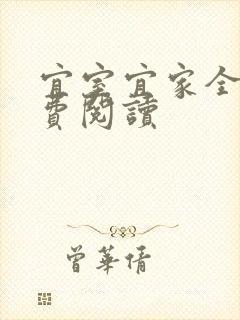 宜室宜家全
費閱讀
曾華倩